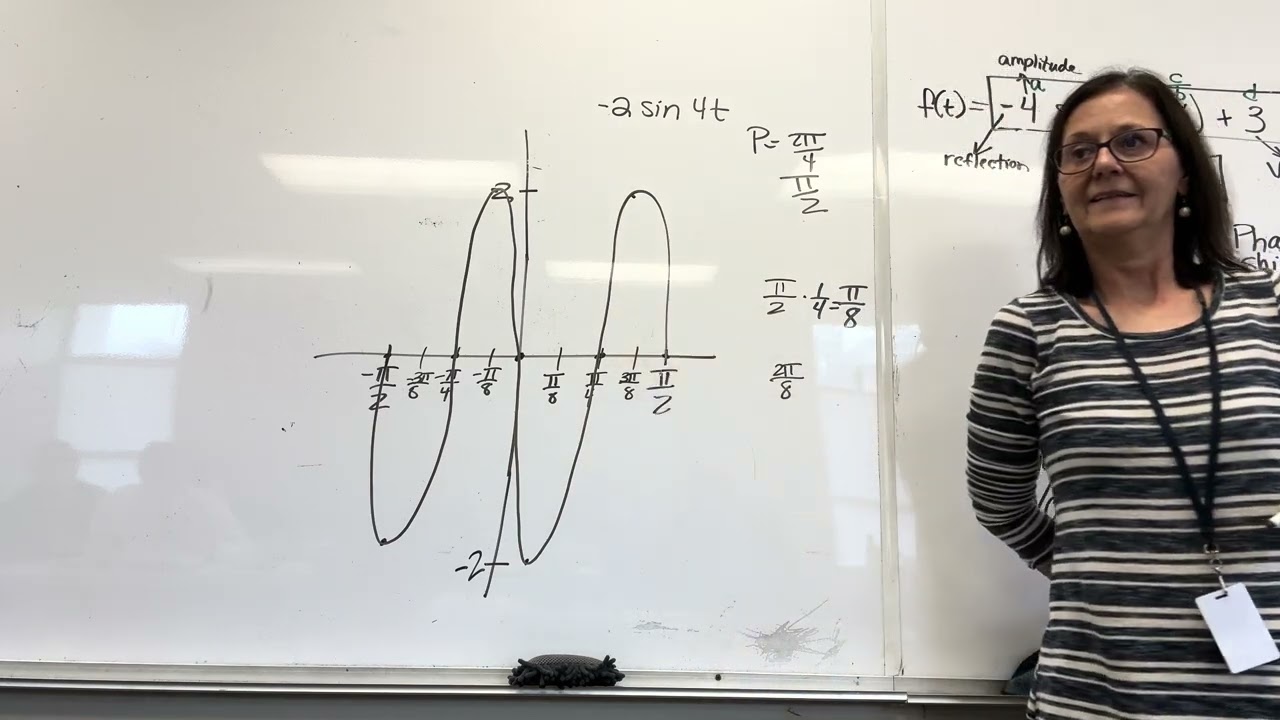 -2 sin 4t
P = 2π/4
π/2
π/2 · 1/4 = π/8
2π/8
2
-π/2 -3π/8 -π/4 -π/8 π/8 π/4 3π/8 π/2
-2
amplitude
a c/b d
f(t) = -4 ) + 3
reflection
Pha
shi